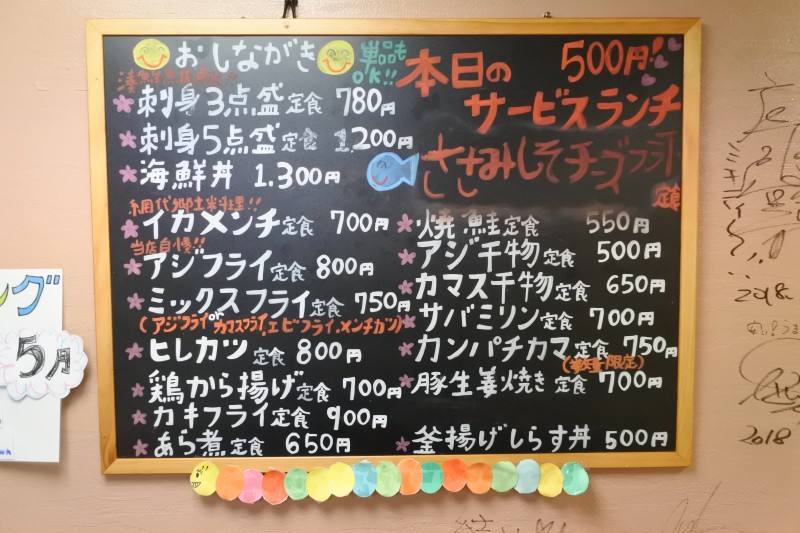 おしながき
単品も
OK!!
刺身3点盛定食 780円
刺身5点盛定食 1,200円
海鮮丼 1,300円
網代郷土料理!!
イカメンチ定食 700円
当店自慢!!
アジフライ定食 800円
ミックスフライ定食 750円
(アジフライorカマスフライ、エビフライ、メンチカツ)
ヒレカツ 定食 800円
鶏から揚げ定食 700円
カキフライ定食 900円
あら煮定食 650円
本日の 500円!
サービスランチ
ささみしそチーズフライ
定食
焼鮭定食 550円
アジ干物定食 500円
カマス干物定食 650円
サバミリン定食 700円
カンパチカマ定食 750円
(数量限定)
豚生姜焼き定食 700円
釜揚げしらす丼 500円
ング
5月
2018.
2018